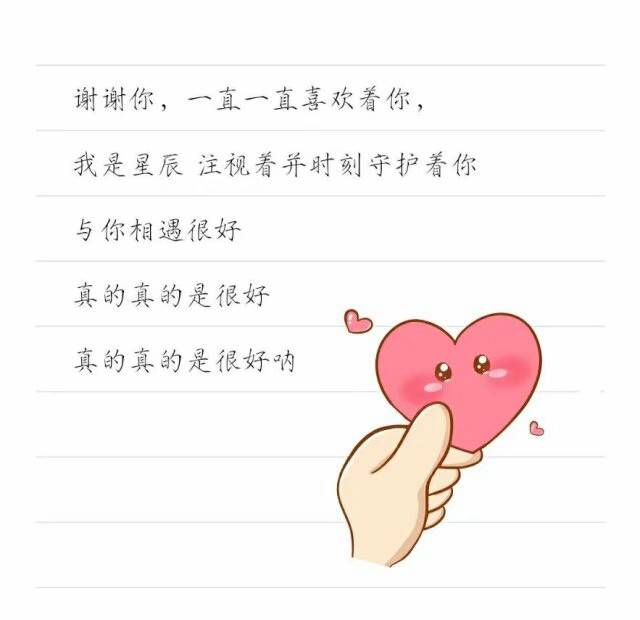 谢谢你，一直一直喜欢着你，
我是星辰 注视着并时刻守护着你
与你相遇很好
真的真的是很好
真的真的是很好呐